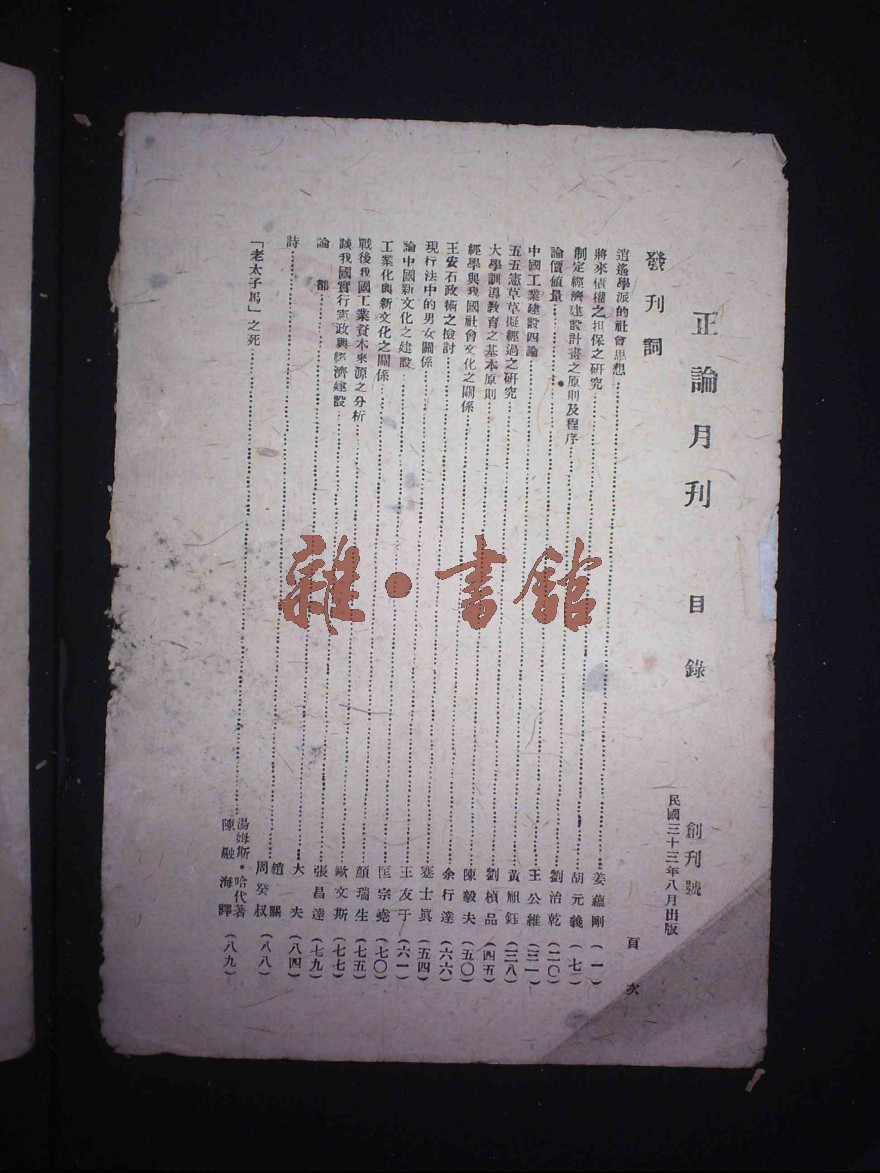 正論月刊 目錄
創刊號
民國三十三年八月出版
頁次
發刊詞
逍遙學派的社會思想……姜蘊剛(一)
將來債權之担保之研究……胡元義(七)
制定經濟建設計畫之原則及程序……劉治乾(二〇)
論價值量……王公維(三一)
中國工業建設四論……黃鈺(三八)
五五憲草草擬經過之研究……劉楨品(四五)
大學訓導教育之基本原則……陳毅夫(五〇)
經學與我國社會文化之關係……余行達(六六)
王安石政術之檢討……蹇士眞(五四)
現行法中的男女關係……王友于(六一)
論中國新文化之建設……匡宗堯(七〇)
工業化與新文化之關係……顏瑞生(七五)
戰後我國工業資本來源之分析……歐文斯(七七)
談我國實行憲政與經濟建設……張昌達(七九)
論 都……大夫(八四)
詩……趙熙
周癸叔(八八)
「老太子馬」之死……湯姆斯·哈代著
陳融海譯(八九)
雜·書館